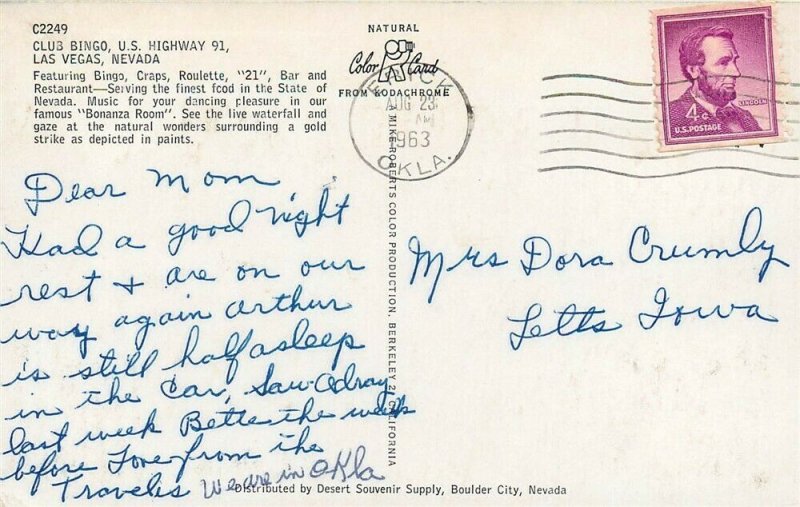 C2249
CLUB BINGO, U.S. HIGHWAY 91,
LAS VEGAS, NEVADA
Featuring Bingo, Craps, Roulette, "21", Bar and
Restaurant—Serving the finest food in the State of
Nevada. Music for your dancing pleasure in our
famous "Bonanza Room". See the live waterfall and
gaze at the natural wonders surrounding a gold
strike as depicted in paints.
NATURAL
Color Card
FROM KODACHROME
AUG 23
AM
1963
OKLA.
4¢
LINCOLN
U.S. POSTAGE
Dear Mom
Had a good night
rest + are on our
way again Arthur
is still half asleep
in the car, Saw
last week Bette the week
before Love from the
Travelers We are in Okla
Mrs Dora Crumly
Letts Iowa
MIKE ROBERTS COLOR PRODUCTION, BERKELEY 2, CALIFORNIA
Distributed by Desert Souvenir Supply, Boulder City, Nevada